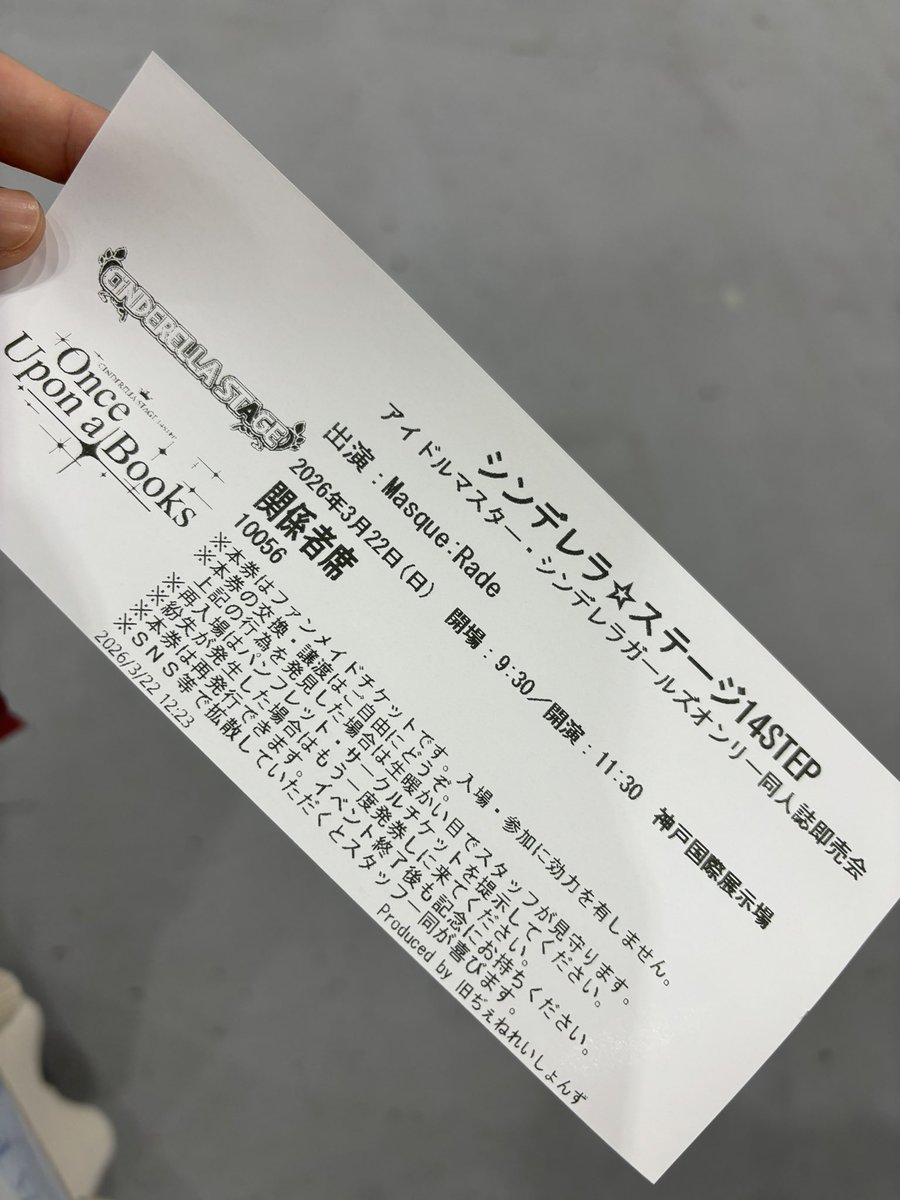 CINDERELLA STAGE
Once
Upon a Books
シンデレラ☆ステージ14STEP
アイドルマスター・シンデレラガールズオンリー同人誌即売会
出演：Masque:Rade
2026年3月22日(日) 開場：9:30/開演：11:30 神戸国際展示場
関係者席
10056
※本券はファンメイドチケットです。入場・参加に効力を有しません。
※本券の交換・譲渡はご自由にどうぞ。
上記の行為を発見した場合は生暖かい目でスタッフが見守ります。
※再入場はパンフレット・サークルチケットを提示してください。
※紛失が発生した場合はもう一度発券しに来てください。
※本券は再発行できます。イベント終了後も記念にお持ちください。
※ＳＮＳ等で拡散していただくとスタッフ一同が喜びます。
2026/3/22 12:23
Produced by 旧ぢぇねれいしょんず